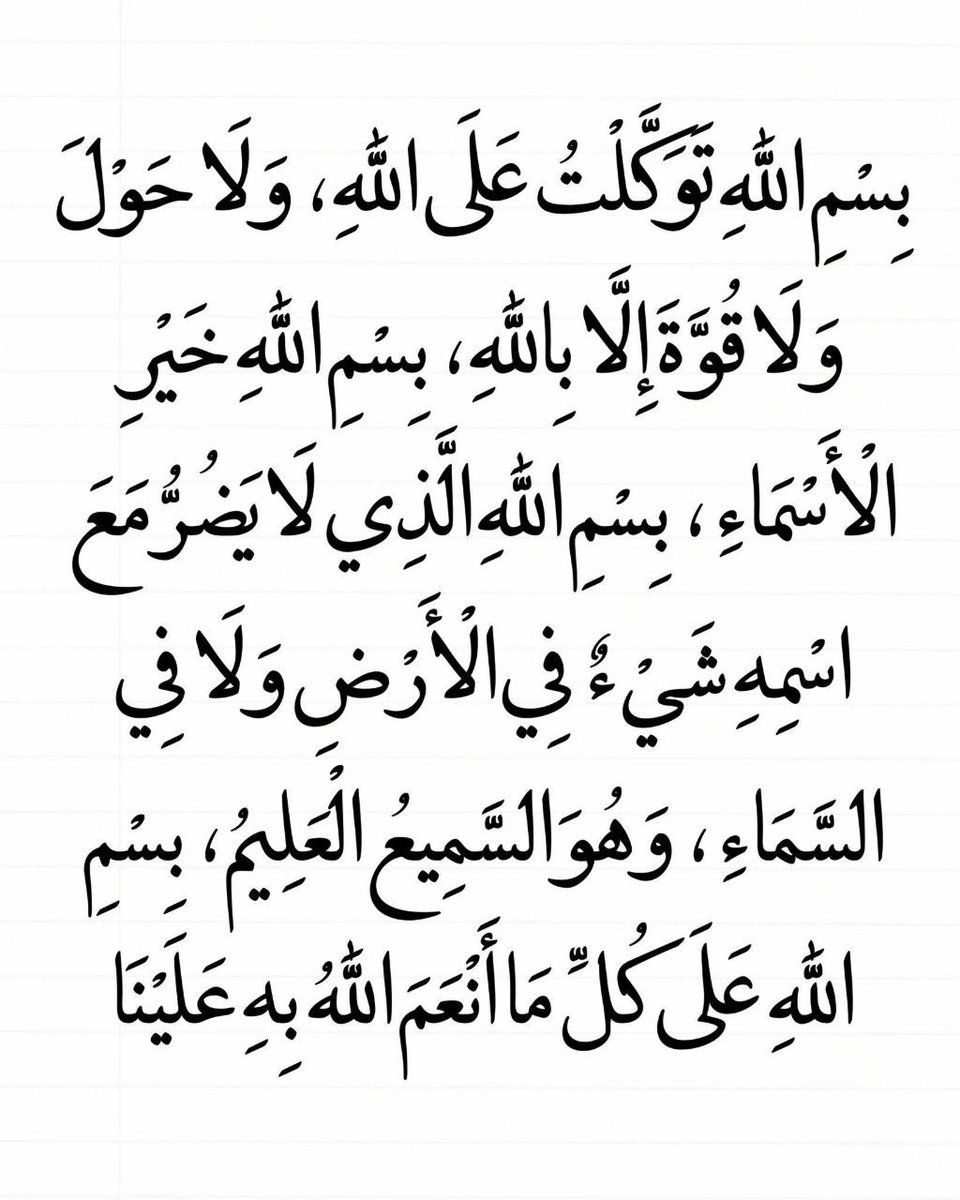 بِسْمِ اللهِ تَوَكَّلْتُ عَلَى اللهِ، وَلَا حَوْلَ
وَلَا قُوَّةَ إِلَّا بِاللهِ، بِسْمِ اللهِ خَيْرِ
الْأَسْمَاءِ، بِسْمِ اللهِ الَّذِي لَا يَضُرُّ مَعَ
اسْمِهِ شَيْءٌ فِي الْأَرْضِ وَلَا فِي
السَّمَاءِ، وَهُوَ السَّمِيعُ الْعَلِيمُ، بِسْمِ
اللهِ عَلَى كُلِّ مَا أَنْعَمَ اللهُ بِهِ عَلَيْنَا